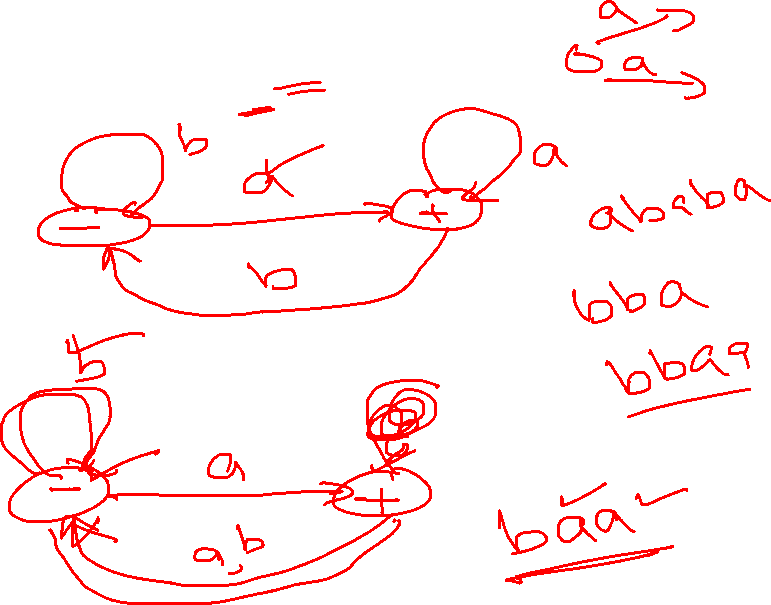 a
b a
b
a
a
- +
ababa
b
bba
bbaa
b
a
- +
a,b
baa